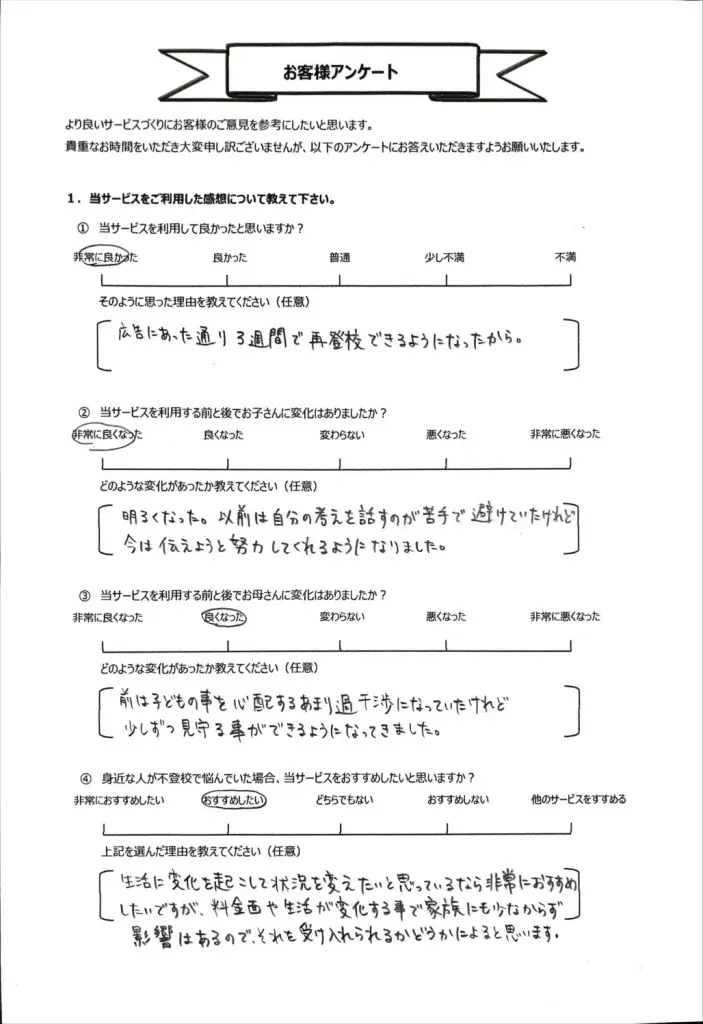 お客様アンケート
より良いサービスづくりにお客様のご意見を参考にしたいと思います。
貴重なお時間をいただき大変申し訳ございませんが、以下のアンケートにお答えいただきますようお願いいたします。
1．当サービスをご利用した感想について教えて下さい。
① 当サービスを利用して良かったと思いますか？
非常に良かった 良かった 普通 少し不満 不満
そのように思った理由を教えてください（任意）
広告にあった通り3週間で再登校できるようになったから。
② 当サービスを利用する前と後でお子さんに変化はありましたか？
非常に良くなった 良くなった 変わらない 悪くなった 非常に悪くなった
どのような変化があったか教えてください（任意）
明るくなった。以前は自分の考えを話すのが苦手で避けていたけれど
今は伝えようと努力してくれるようになりました。
③ 当サービスを利用する前と後でお母さんに変化はありましたか？
非常に良くなった 良くなった 変わらない 悪くなった 非常に悪くなった
どのような変化があったか教えてください（任意）
前は子どもの事を心配するあまり過干渉になっていたけれど
少しずつ見守る事ができるようになってきました。
④ 身近な人が不登校で悩んでいた場合、当サービスをおすすめしたいと思いますか？
非常におすすめしたい おすすめしたい どちらでもない おすすめしない 他のサービスをすすめる
上記を選んだ理由を教えてください（任意）
生活に変化を起こして状況を変えたいと思っているなら非常におすすめ
したいですが、料金面や生活が変化する事で家族にも少なからず
影響はあるので、それを受け入れられるかどうかによると思います。